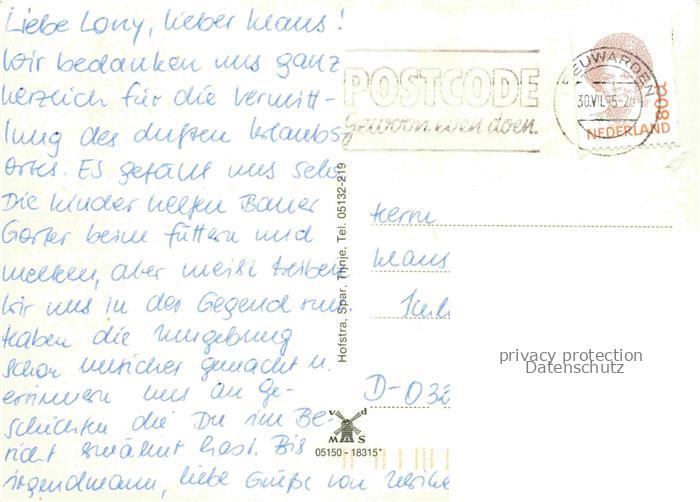 Liebe Lony, lieber Klaus!
Wir bedanken uns ganz
herzlich für die Vermitt-
lung des duften Urlaubs
Ortes. Es gefällt uns sehr
Die Kinder helfen Bauer
Gorter beim füttern und
melken, aber meist treiben
wir uns in der Gegend rum.
Haben die Umgebung
schon unsicher gemacht u.
erinnern uns an Ge-
schichten die Du im Be-
richt erwähnt hast. Bis
irgendmann, liebe Grüße von
POSTCODE
gewoon even doen.
EUWARDEN
30.VII.95-20
80ct
NEDERLAND
Hofstra, Spar, Tijnje, Tel. 05132-219
Herrn
Klaus
D-032
privacy protection
Datenschutz
05150-18315*